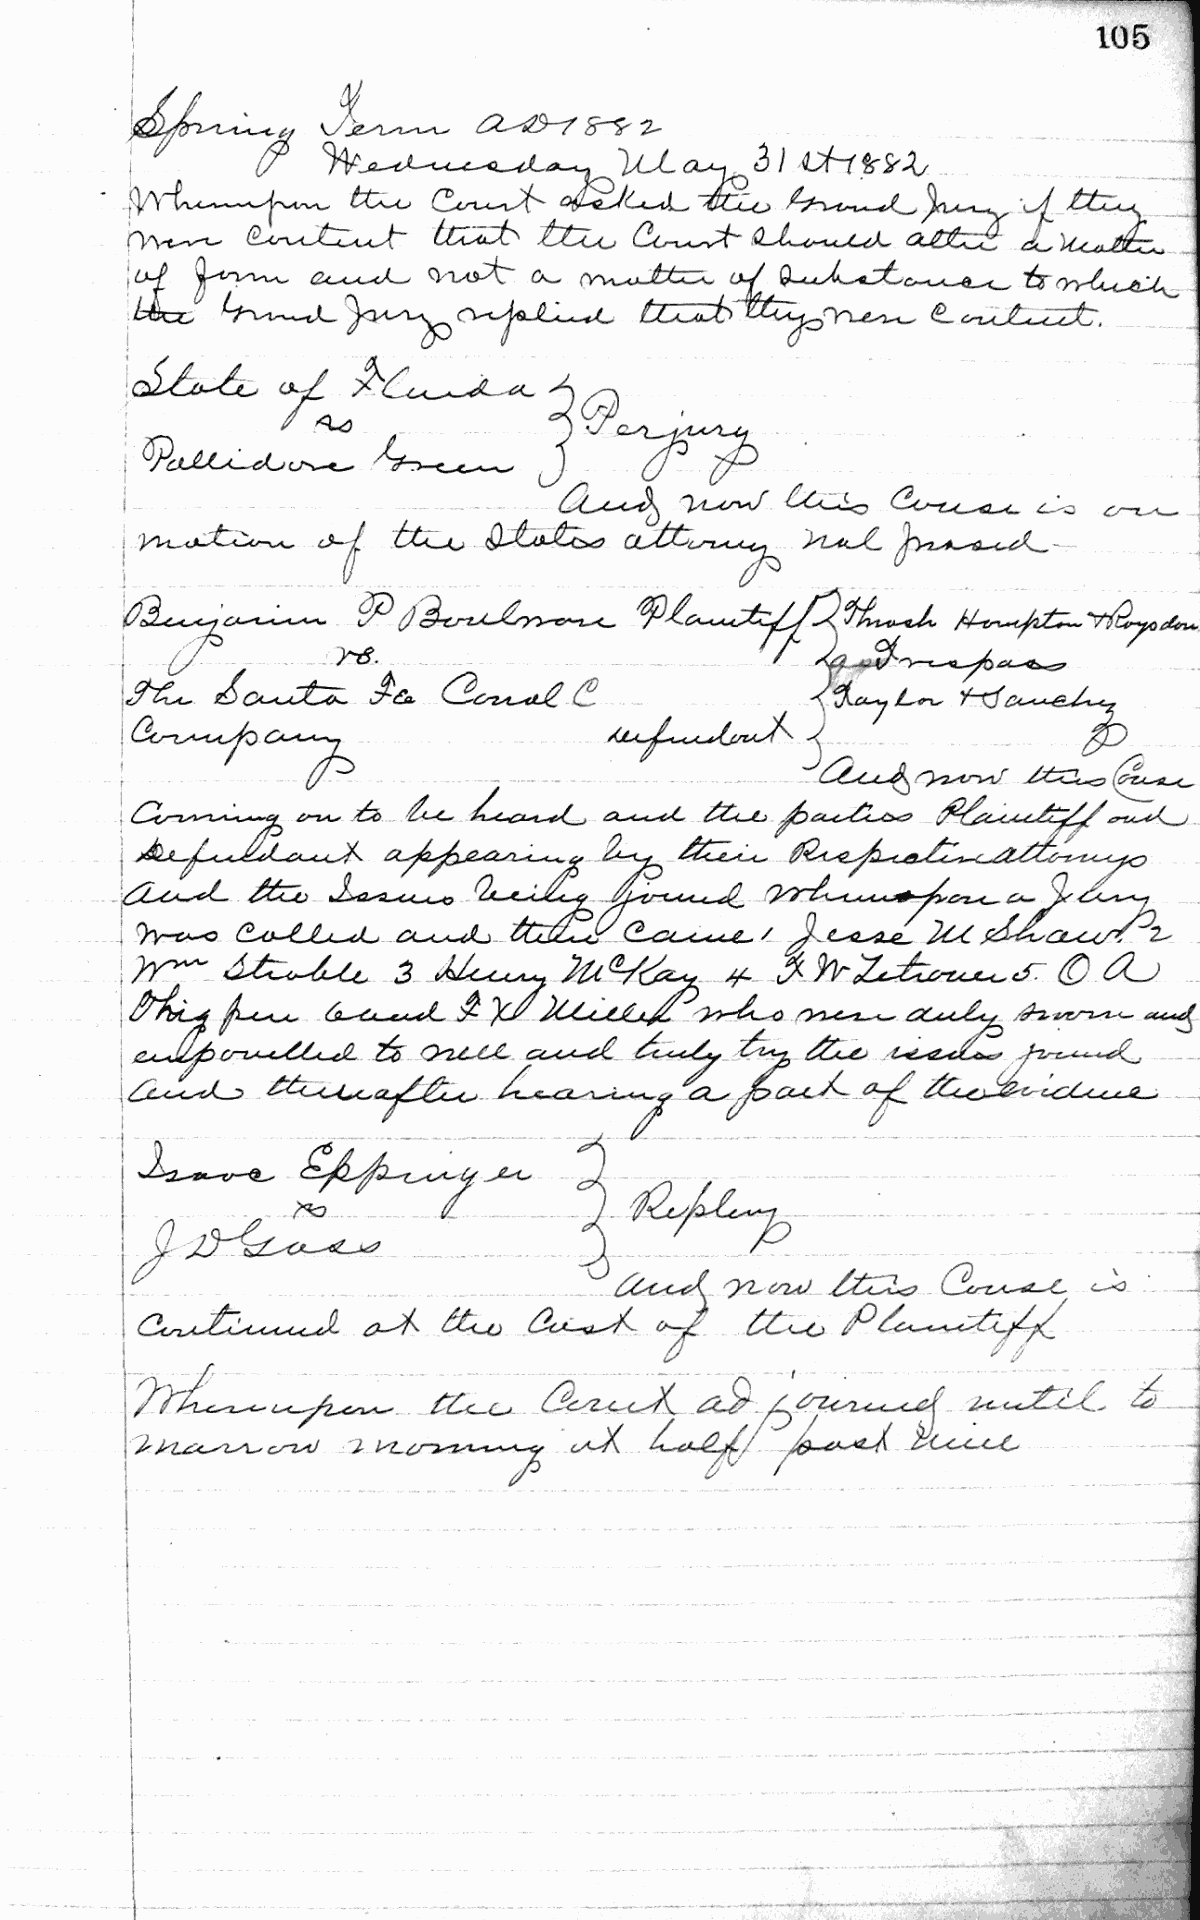 105
Spring Term AD 1882
Wednesday May 31st 1882
Whereupon the Court asked the Grand Jury if they
were content that the Court should alter a matter
of form and not a matter of substance to which
the Grand Jury replied that they were content.
State of Florida
vs
Perjury
Pallidore Green
And now this Cause is on
motion of the States attorney nol prosed
Benjamin P Boulware Plaintiff Thrash Hampton & Roysdon
vs. Trespass
The Santa Fe Canal C Taylor & Sanchez
Company defendant
And now this Cause
Coming on to be heard and the parties Plaintiff and
defendant appearing by their Respective attorneys
and the Issues being joined whereupon a Jury
was called and there came 1 Jesse M Shaw. 2
Wm Stroble 3 Henry McKay 4 F W 5. O A
Thigpen 6 and F X Miller who were duly sworn and
empanelled to well and truly try the issues joined
and thereafter hearing a part of the evidence
Isaac Eppinger
vs
Replevy
J D Goss
And now this Cause is
continued at the Cost of the Plaintiff
Whereupon the Court adjourned until to
morrow morning at half past nine